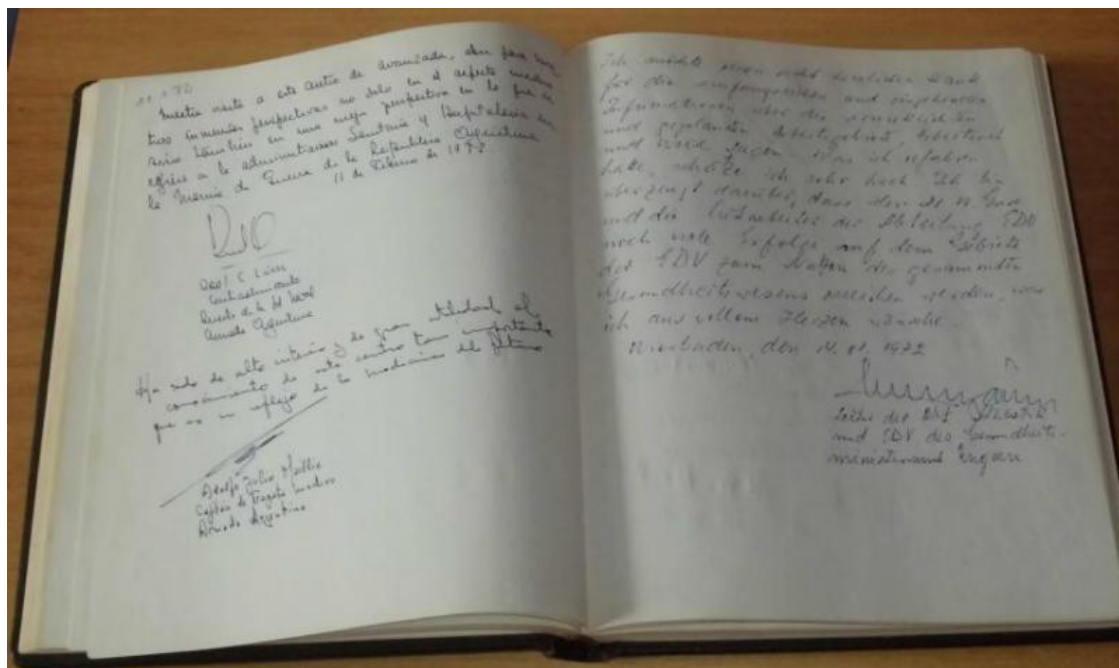 Nuestra visita a este centro de avanzada, abre para
tivos inmensas perspectivas no solo en el aspecto medico
sino también en una mejor perspectiva en lo que se
refiere a la administracion Sanitaria y Hospitalaria en
la Marina de Guerra de la Republica Argentina
11 de Febrero de
C.
Contraalmirante
Director de la
Armada Argentina
Ha sido de alto interés y de gran utilidad el
conocimiento de este centro tan importante
que es un reflejo de la medicina del futuro
Adolfo Julio
Capitán de Fragata medico
Armada Argentina
Ich möchte meinen herzlichen Dank
für die und eingehenden
Informationen über die verwirklichten
und geplanten Arbeitsgebiete,
und Ziele sagen. Was ich erfahren
habe, schätze ich sehr hoch. Ich bin
überzeugt darüber, dass
und die Mitarbeiter der Abteilung EDV
noch viele Erfolge auf dem Gebiete
der EDV zum Nutzen des gesammten
Gesundheitswesens erreichen werden, was
ich aus vollem Herzen wünsche.
Wiesbaden, den 1972
Leiter der
und EDV des Gesundheits-
ministeriums Ungarn